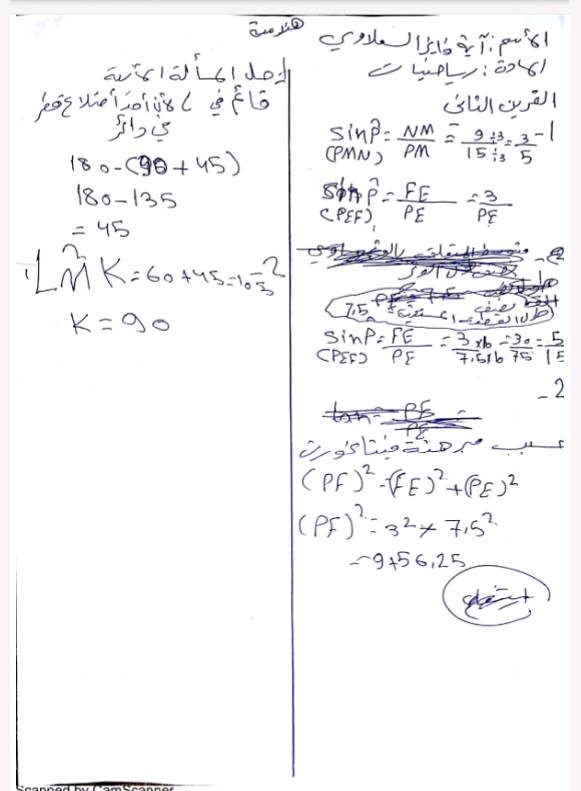 الأسم: آية فايز السعلاوي
المادة: رياضيات
التمرين الثاني
1- sin P̂ = NM/PM = 9÷3/15÷3 = 3/5
(PMN)
sin P̂ = FE/PE = 3/PE
(PEF)
7,5
sin P = FE/PE = 3×10/7.5×10 = 30/75 = 5/15
(PEF)
2-
حسب مبرهنة فيتاغورث
(PF)² = (FE)² + (PE)²
(PF)² = 3² + 7,5²
= 9+56,25
هندسة
المسألة
قائم في L لأن أحد أضلاع قطر
في دائر
180-(90+45)
180-135
= 45
2- LM̂K=60+45=105
K=90
Scanned by CamScanner